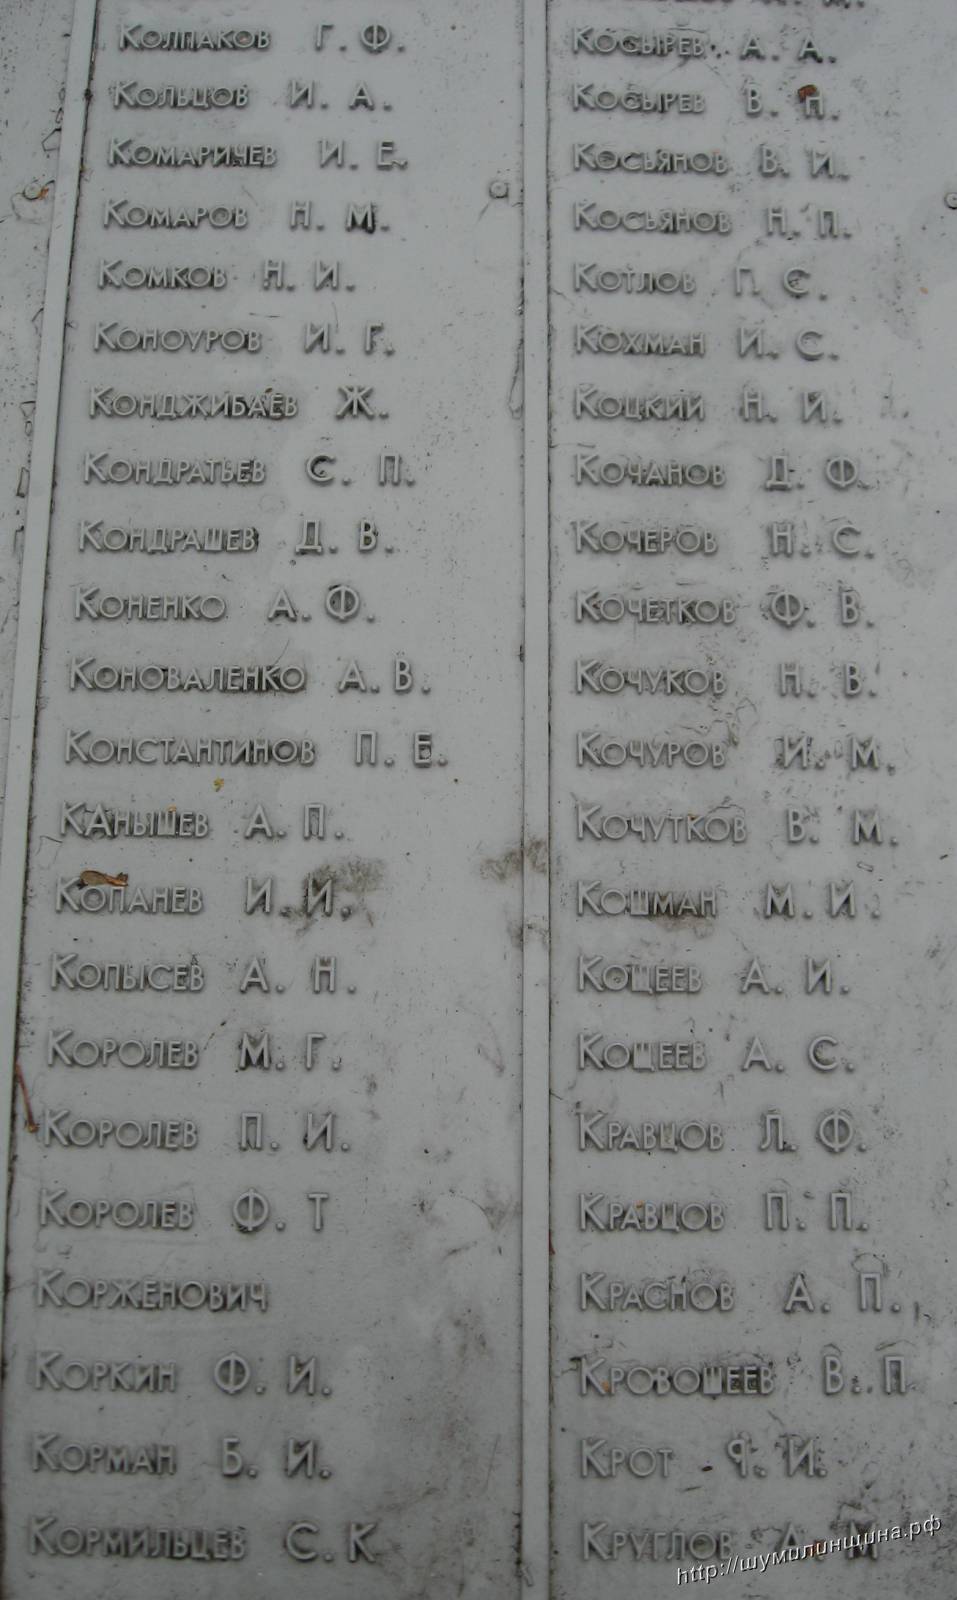 Колпаков Г. Ф.
Кольцов И. А.
Комаричев И. Е.
Комаров Н. М.
Комков Н. И.
Коноуров И. Г.
Конджибаев Ж.
Кондратьев С. П.
Кондрашев Д. В.
Коненко А. Ф.
Коноваленко А. В.
Константинов П. Е.
КАнышев А. П.
Копанев И. И.
Копысев А. Н.
Королев М. Г.
Королев П. И.
Королев Ф. Т
Корженович
Коркин Ф. И.
Корман Б. И.
Кормильцев С. К
Косырев А. А.
Косырев В. Н.
Косьянов В. И.
Косьянов Н. П.
Котлов П С.
Кохман И. С.
Коцкий Н. И.
Кочанов Д. Ф.
Кочеров Н. С.
Кочетков Ф. В.
Кочуков Н. В.
Кочуров И. М.
Кочутков В. М.
Кошман М. И.
Кощеев А. И.
Кощеев А. С.
Кравцов Л. Ф.
Кравцов П. П.
Краснов А. П.
Кровошеев В. П
Крот И.
Круглов А. М
http://шумилинщина.рф